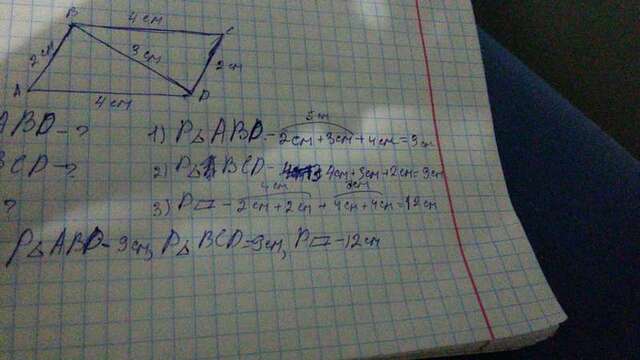 A
B
2 см
4 см
3 см
4 см
D
2 см
C
ABD - ?
BCD - ?
?
1) P△ABD - 2см + 3см + 4см = 9см
5см
2) P△BCD - 4см + 3см + 2см = 9см
3) P▱ - 2см + 2см + 4см + 4см = 12см
4см
8см
P△ABD - 9см, P△BCD - 9см, P▱ - 12см